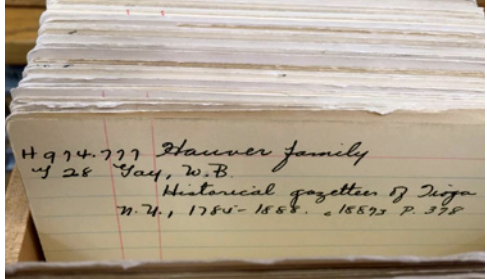 H974.777 Hauver family
28 Gay, W.B.
Historical gazetteer of Tioga
N.Y., 1785-1888. c1887? P. 378